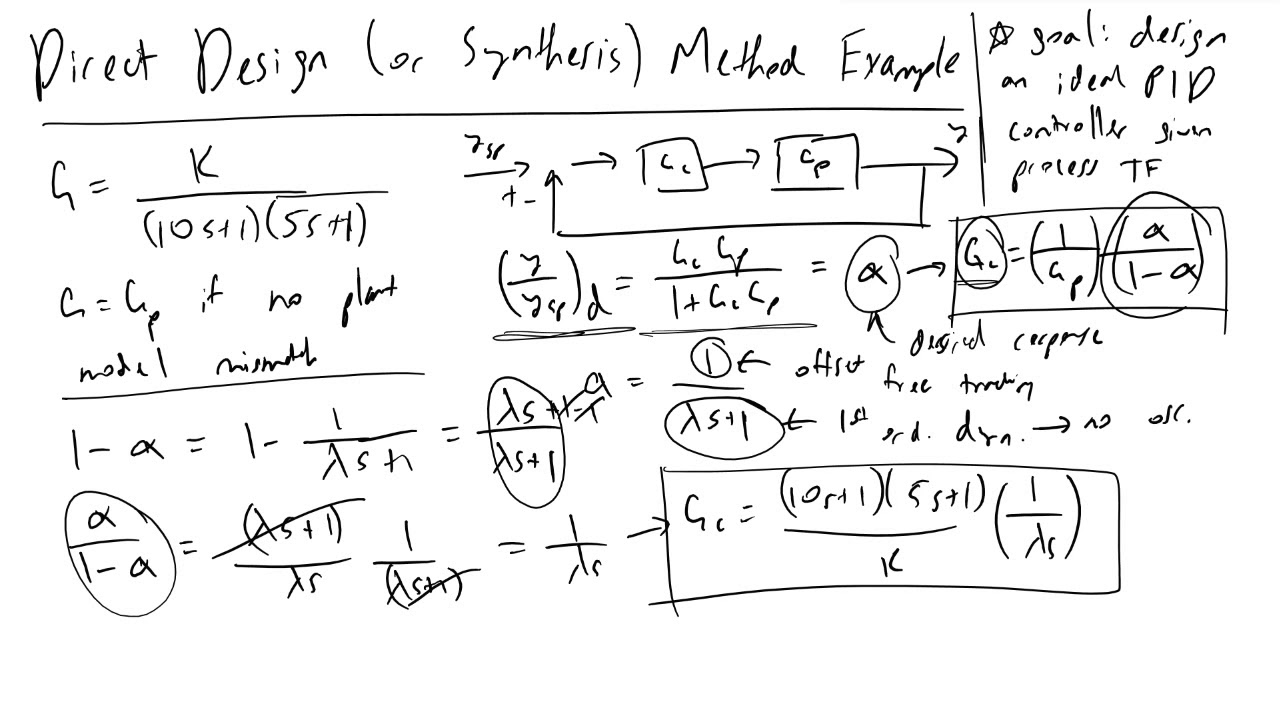 Direct Design (or Synthesis) Method Example
☆ goal: design
an ideal PID
controller given
process TF
G = K / ((10s+1)(5s+1))
y_sp + - → G_c → G_p → y
G = G_p if no plant
model mismatch
(y/y_sp)_d = G_c G_p / (1 + G_c G_p) = α → G_c = (1/G_p)(α/(1-α))
desired response
α = 1 / (λs+1)
1 ← offset
free tracking
λs+1 ← 1st
ord. dyn. → no osc.
1 - α = 1 - 1/(λs+1) = (λs+1-1)/(λs+1)
α/(1-α) = (λs+1)/λs 1/(λs+1) = 1/λs → G_c = (10s+1)(5s+1)/K (1/λs)